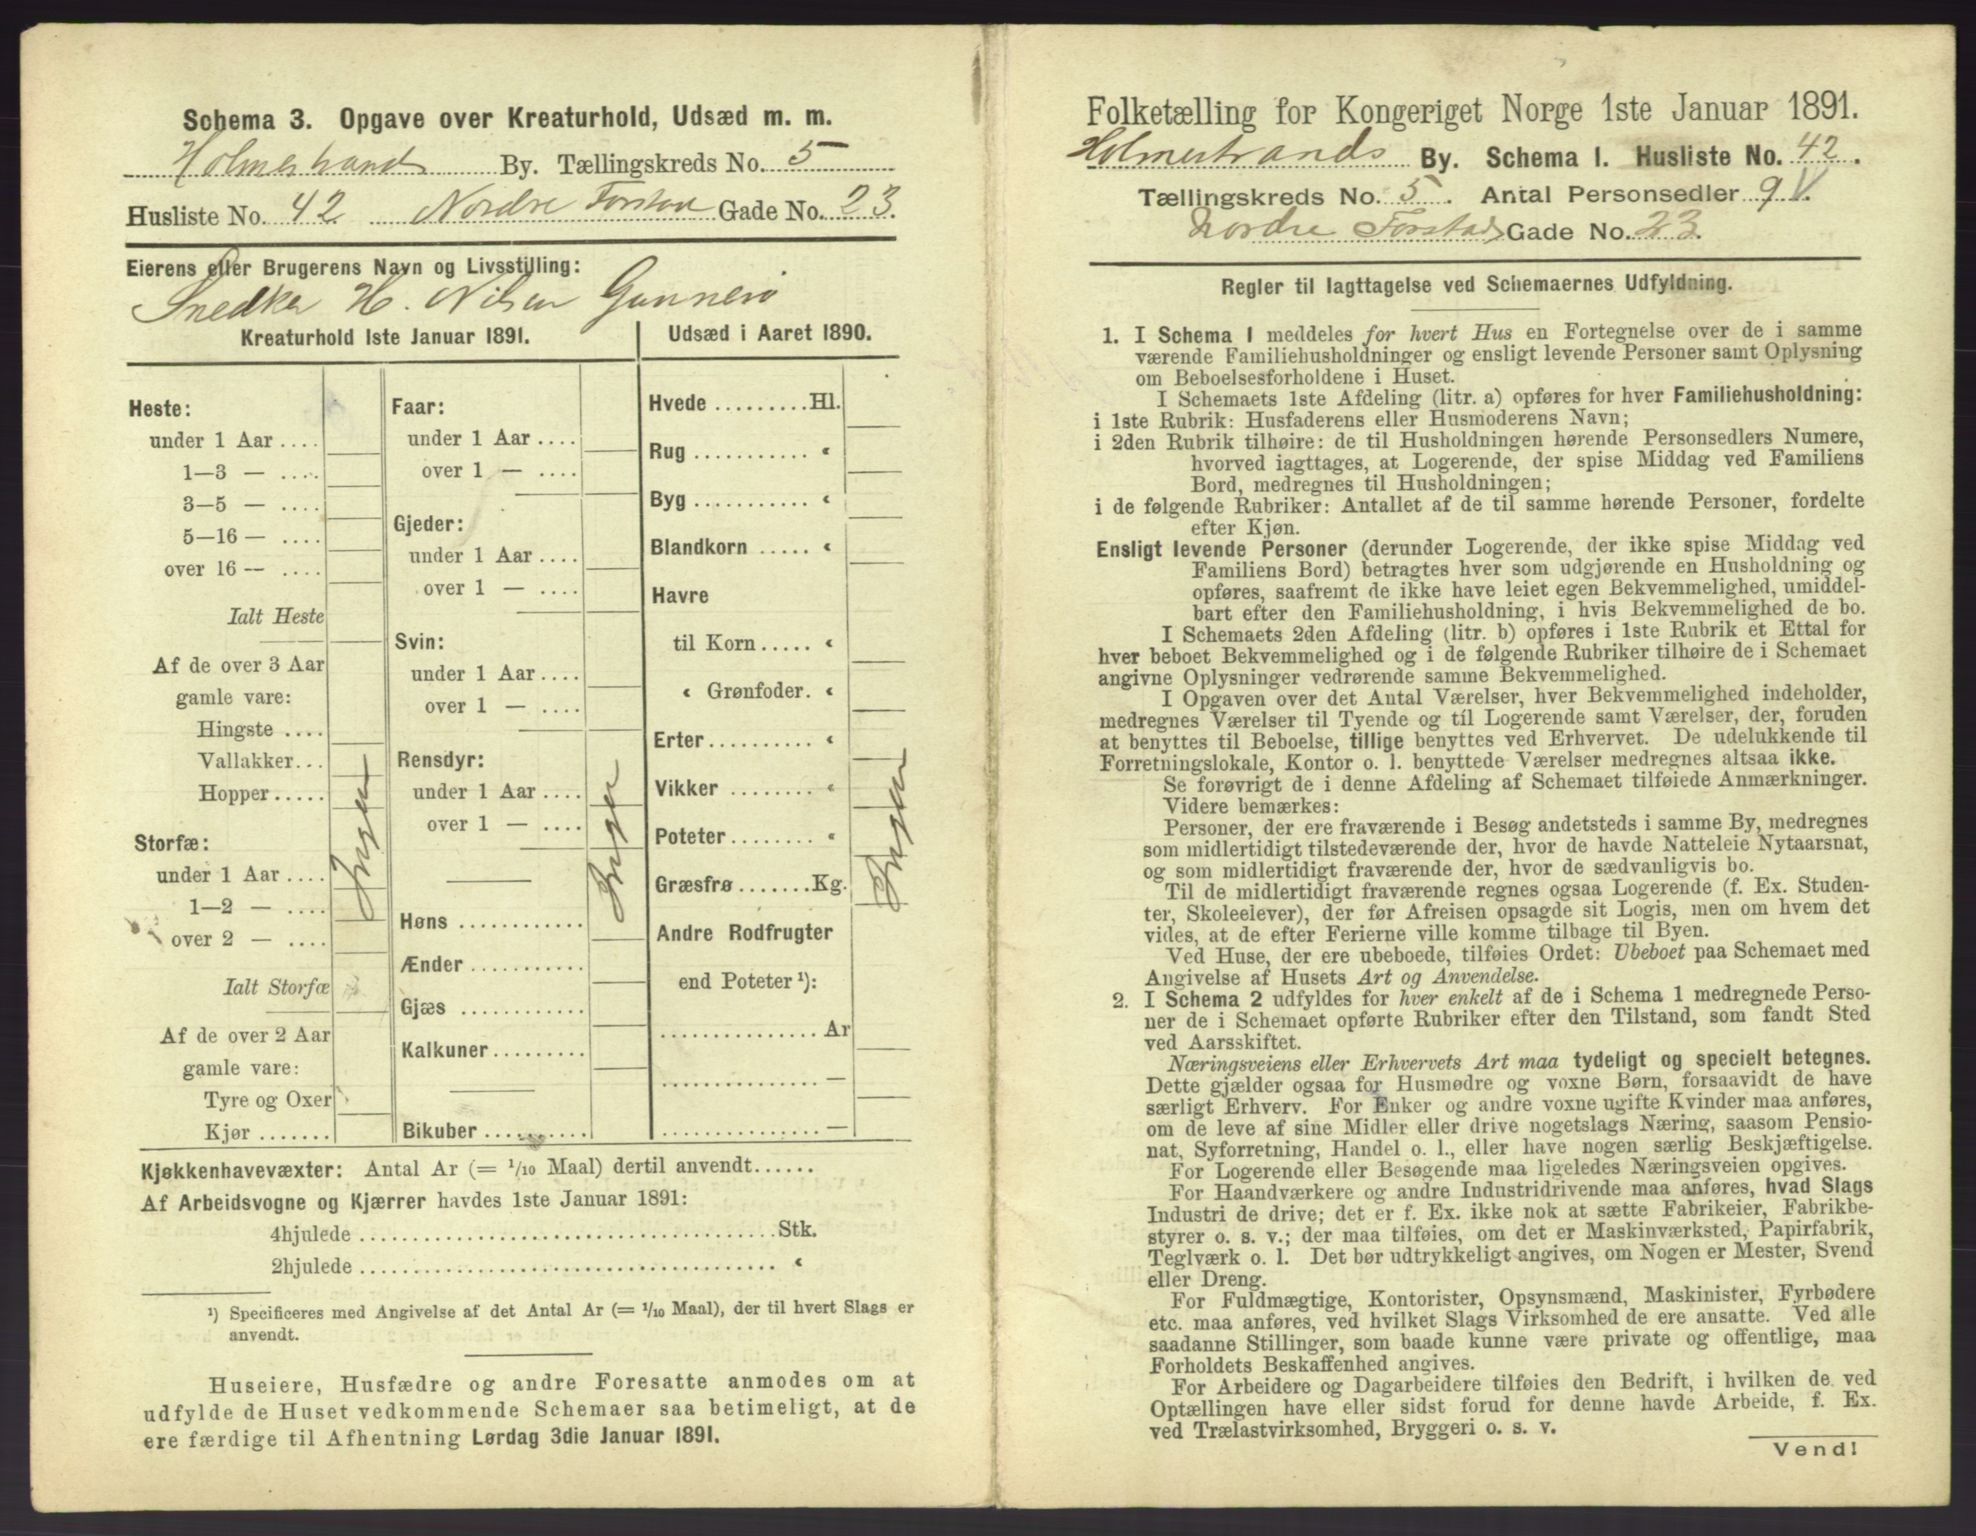 Schema 3. Opgave over Kreaturhold, Udsæd m. m.
Holmestrand By. Tællingskreds No. 5
Husliste No. 42 Nordre Forstad Gade No. 23.
Eierens eller Brugerens Navn og Livsstilling:
Snedker H. Nilsen Gunnerö
Kreaturhold 1ste Januar 1891.
Heste:
under 1 Aar ....
1—3 — ....
3—5 — ....
5—16 — ....
over 16 — ....
Ialt Heste
Af de over 3 Aar
gamle vare:
Hingste ....
Vallakker...
Hopper.....
Storfæ:
under 1 Aar ....
1—2 — ....
over 2 — ....
Ialt Storfæ
Af de over 2 Aar
gamle vare:
Tyre og Oxer
Kjør .......
Ingen
Faar:
under 1 Aar ....
over 1 — ....
Gjeder:
under 1 Aar ....
over 1 — ....
Svin:
under 1 Aar ....
over 1 — ....
Rensdyr:
under 1 Aar ....
over 1 — ....
Høns ...........
Ænder ..........
Gjæs ...........
Kalkuner.........
Bikuber ..........
Ingen
Udsæd i Aaret 1890.
Hvede .........Hl.
Rug ........... "
Byg ........... "
Blandkorn ..... "
Havre
til Korn..... "
" Grønfoder. "
Erter.......... "
Vikker ........ "
Poteter........ "
Græsfrø .......Kg.
Andre Rodfrugter
end Poteter ¹):
............... Ar
............... —
............... —
Ingen
Kjøkkenhavevæxter: Antal Ar (= 1/10 Maal) dertil anvendt......
Af Arbeidsvogne og Kjærrer havdes 1ste Januar 1891:
4hjulede ........................................Stk.
2hjulede ........................................ "
¹) Specificeres med Angivelse af det Antal Ar (= 1/10 Maal), der til hvert Slags er
anvendt.
Huseiere, Husfædre og andre Foresatte anmodes om at
udfylde de Huset vedkommende Schemaer saa betimeligt, at de
ere færdige til Afhentning Lørdag 3die Januar 1891.
Folketælling for Kongeriget Norge 1ste Januar 1891.
Holmestrands By. Schema 1. Husliste No. 42.
Tællingskreds No. 5. Antal Personsedler 9 V.
Nordre Forstads Gade No. 23.
Regler til Iagttagelse ved Schemaernes Udfyldning.
1. I Schema 1 meddeles for hvert Hus en Fortegnelse over de i samme
værende Familiehusholdninger og ensligt levende Personer samt Oplysning
om Beboelsesforholdene i Huset.
I Schemaets 1ste Afdeling (litr. a) opføres for hver Familiehusholdning:
i 1ste Rubrik: Husfaderens eller Husmoderens Navn;
i 2den Rubrik tilhøire: de til Husholdningen hørende Personsedlers Numere,
hvorved iagttages, at Logerende, der spise Middag ved Familiens
Bord, medregnes til Husholdningen;
i de følgende Rubriker: Antallet af de til samme hørende Personer, fordelte
efter Kjøn.
Ensligt levende Personer (derunder Logerende, der ikke spise Middag ved
Familiens Bord) betragtes hver som udgjørende en Husholdning og
opføres, saafremt de ikke have leiet egen Bekvemmelighed, umiddel-
bart efter den Familiehusholdning, i hvis Bekvemmelighed de bo.
I Schemaets 2den Afdeling (litr. b) opføres i 1ste Rubrik et Ettal for
hver beboet Bekvemmelighed og i de følgende Rubriker tilhøire de i Schemaet
angivne Oplysninger vedrørende samme Bekvemmelighed.
I Opgaven over det Antal Værelser, hver Bekvemmelighed indeholder,
medregnes Værelser til Tyende og til Logerende samt Værelser, der, foruden
at benyttes til Beboelse, tillige benyttes ved Erhvervet. De udelukkende til
Forretningslokale, Kontor o. l. benyttede Værelser medregnes altsaa ikke.
Se forøvrigt de i denne Afdeling af Schemaet tilføiede Anmærkninger.
Videre bemærkes:
Personer, der ere fraværende i Besøg andetsteds i samme By, medregnes
som midlertidigt tilstedeværende der, hvor de havde Natteleie Nytaarsnat,
og som midlertidigt fraværende der, hvor de sædvanligvis bo.
Til de midlertidigt fraværende regnes ogsaa Logerende (f. Ex. Studen-
ter, Skoleelever), der før Afreisen opsagde sit Logis, men om hvem det
vides, at de efter Ferierne ville komme tilbage til Byen.
Ved Huse, der ere ubeboede, tilføies Ordet: Ubeboet paa Schemaet med
Angivelse af Husets Art og Anvendelse.
2. I Schema 2 udfyldes for hver enkelt af de i Schema 1 medregnede Perso-
ner de i Schemaet opførte Rubriker efter den Tilstand, som fandt Sted
ved Aarsskiftet.
Næringsveiens eller Erhvervets Art maa tydeligt og specielt betegnes.
Dette gjælder ogsaa for Husmødre og voxne Børn, forsaavidt de have
særligt Erhverv. For Enker og andre voxne ugifte Kvinder maa anføres,
om de leve af sine Midler eller drive nogetslags Næring, saasom Pensio-
nat, Syforretning, Handel o. l., eller have nogen særlig Beskjæftigelse.
For Logerende eller Besøgende maa ligeledes Næringsveien opgives.
For Haandværkere og andre Industridrivende maa anføres, hvad Slags
Industri de drive; det er f. Ex. ikke nok at sætte Fabrikeier, Fabrikbe-
styrer o. s. v.; der maa tilføies, om det er Maskinværksted, Papirfabrik,
Teglværk o. l. Det bør udtrykkeligt angives, om Nogen er Mester, Svend
eller Dreng.
For Fuldmægtige, Kontorister, Opsynsmænd, Maskinister, Fyrbødere
etc. maa anføres, ved hvilket Slags Virksomhed de ere ansatte. Ved alle
saadanne Stillinger, som baade kunne være private og offentlige, maa
Forholdets Beskaffenhed angives.
For Arbeidere og Dagarbeidere tilføies den Bedrift, i hvilken de ved
Optællingen have eller sidst forud for denne havde Arbeide, f. Ex.
ved Trælastvirksomhed, Bryggeri o. s. v.
Vend!